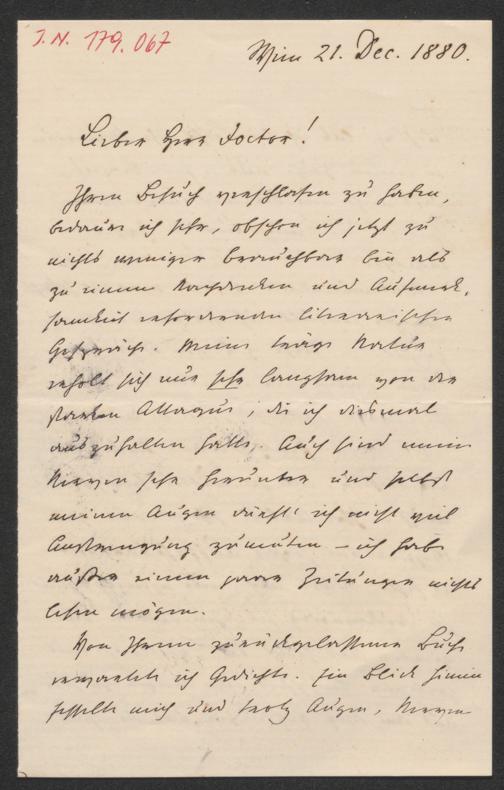 J.N. 179.067
Wien 21. Dec. 1880.
Lieber Herr Doctor!
Ihren Besuch verschlafen zu haben,
bedaure ich sehr, obschon ich jetzt zu
nichts weniger brauchbar bin als
zu einem Nachdenken und Aufmerk-
samkeit erfordernden literarischen
Gespräch. Meine träge Natur
erholt sich nur sehr langsam von der
starken Attaque, die ich diesmal
auszuhalten hatte. Auch sind meine
Nerven sehr herunter und selbst
meinen Augen durft' ich nicht viel
Anstrengung zumuten – ich habe
außer einem paar Zeitungen nichts
lesen mögen.
Von Ihrem zurückgelassenen Buche
erwartete ich Gedichte. Ein Blick hinein
fesselte mich und trotz Augen, Nerven